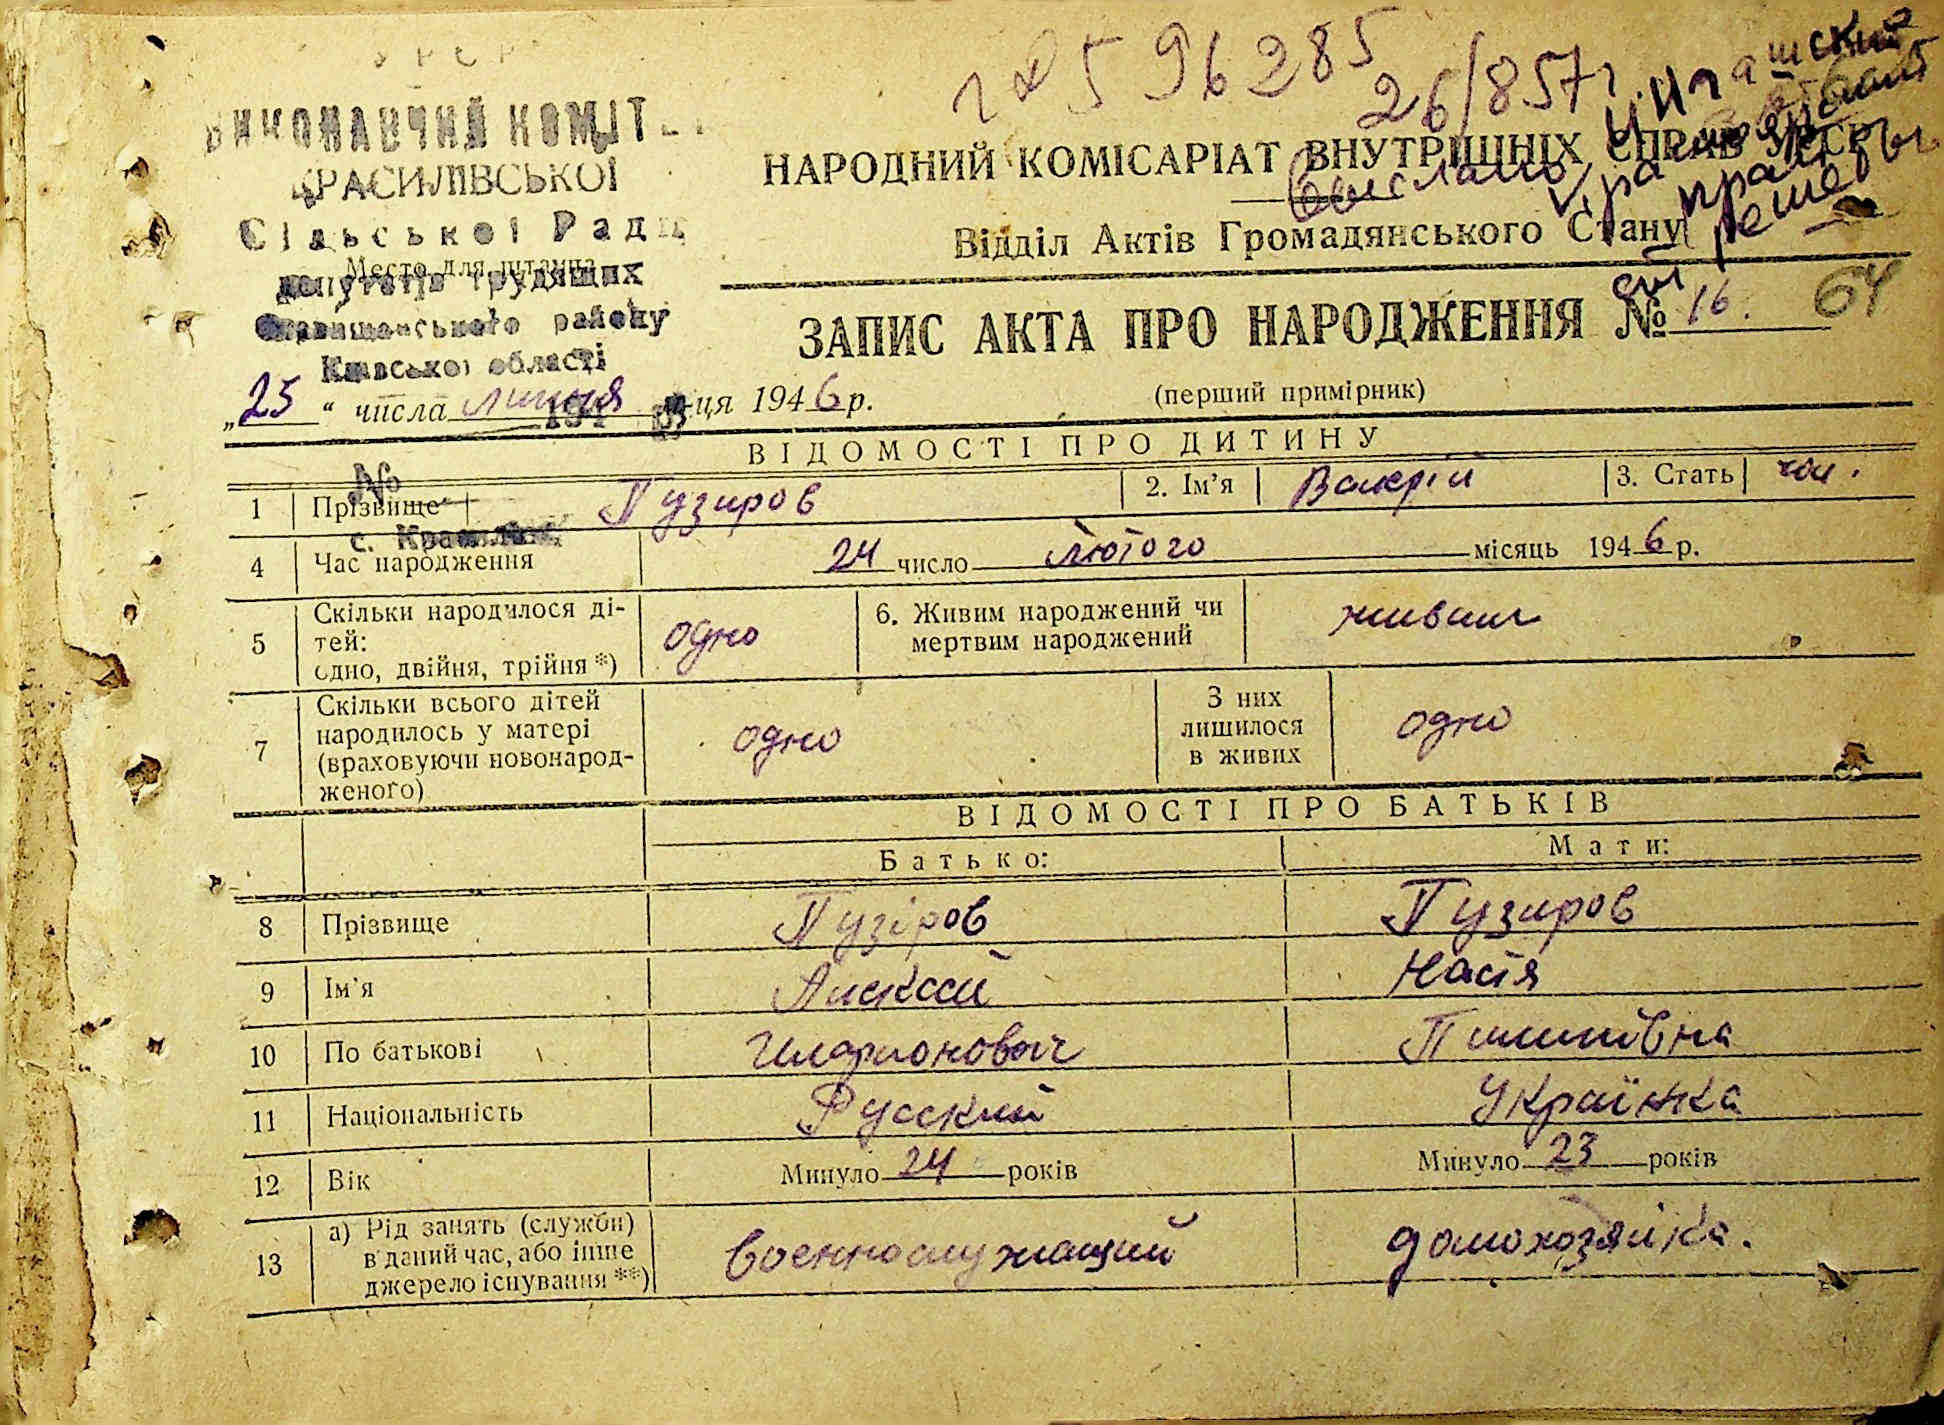 УРСР
ВИКОНАВЧИЙ КОМІТ
КРАСИЛІВСЬКОЇ
Сільської Ради
Место для штампа
депутатів трудящих
Ставищанського району
Київської області
194
№
с. Красилівка
596285
26/857
выслать
НАРОДНИЙ КОМІСАРІАТ ВНУТРІШНІХ СПРАВ УРСР
Відділ Актів Громадянського Стану
ЗАПИС АКТА ПРО НАРОДЖЕННЯ № 16. 64
(перший примірник)
„25“ числа липня м-ця 1946 р.
ВІДОМОСТІ ПРО ДИТИНУ
1 Прізвище Пузиров 2. Ім’я Валерій 3. Стать чол.
4 Час народження 24 число лютого місяць 1946 р.
5 Скільки народилося ді-
тей:
одно, двійня, трійня *) одно 6. Живим народжений чи
мертвим народжений живим
7 Скільки всього дітей
народилось у матері
(враховуючи новонарод-
женого) одно З них
лишилося
в живих одно
ВІДОМОСТІ ПРО БАТЬКІВ
Батько: Мати:
8 Прізвище Пузіров Пузиров
9 Ім’я Алексей Настя
10 По батькові Иларионович Пилипівна
11 Національність Русский Українка
12 Вік Минуло 24 років Минуло 23 років
13 а) Рід занять (служби)
в даний час, або інше
джерело існування **) военнослужащий домохозяйка.